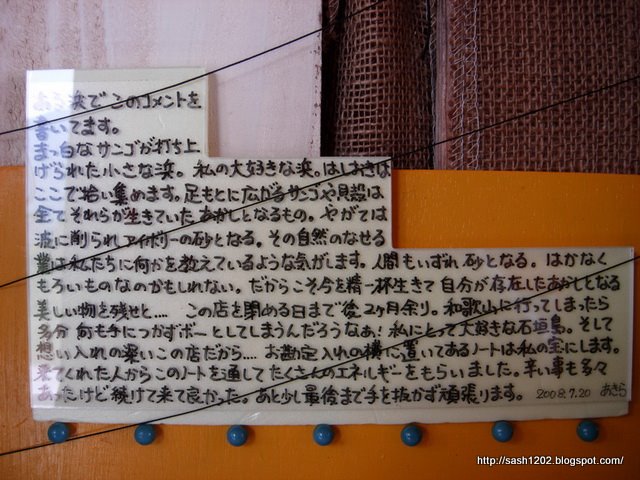 ある浜でこのコメントを
書いてます。
まっ白なサンゴが打ち上
げられた小さな浜。私の大好きな浜。はしおきは
ここで拾い集めます。足もとに広がるサンゴや貝殻は
全てそれらが生きていたあかしとなるもの。やがては
波に削られアイボリーの砂となる。その自然のなせる
業は私たちに何かを教えているような気がします。人間もいずれ砂となる。はかなく
もろいものなのかもしれない。だからこそ今を精一杯生きて自分が存在したあかしとなる
美しい物を残せと.... この店を閉める日まで後2ヶ月余り。和歌山に行ってしまったら
多分何も手につかずボーとしてしまうんだろうなぁ!私にとって大好きな石垣島。そして
想い入れの深いこの店だから.... お勘定入れの横に置いてあるノートは私の宝にします。
来てくれた人からこのノートを通してたくさんのエネルギーをもらいました。辛い事も多々
あったけど続けて来て良かった。あと少し最後まで手を抜かず頑張ります。 2008.7.20 あきら
http://sash1202.blogspot.com/